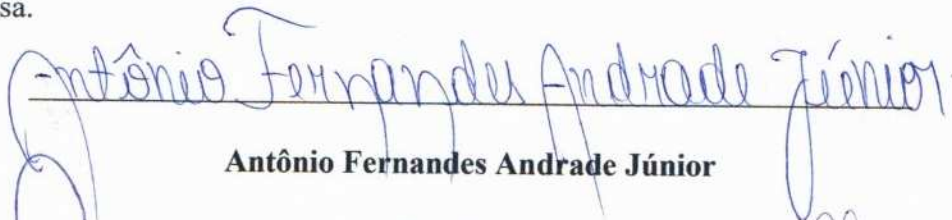 sa.
Antônio Fernandes Andrade Júnior
Antônio Fernandes Andrade Júnior